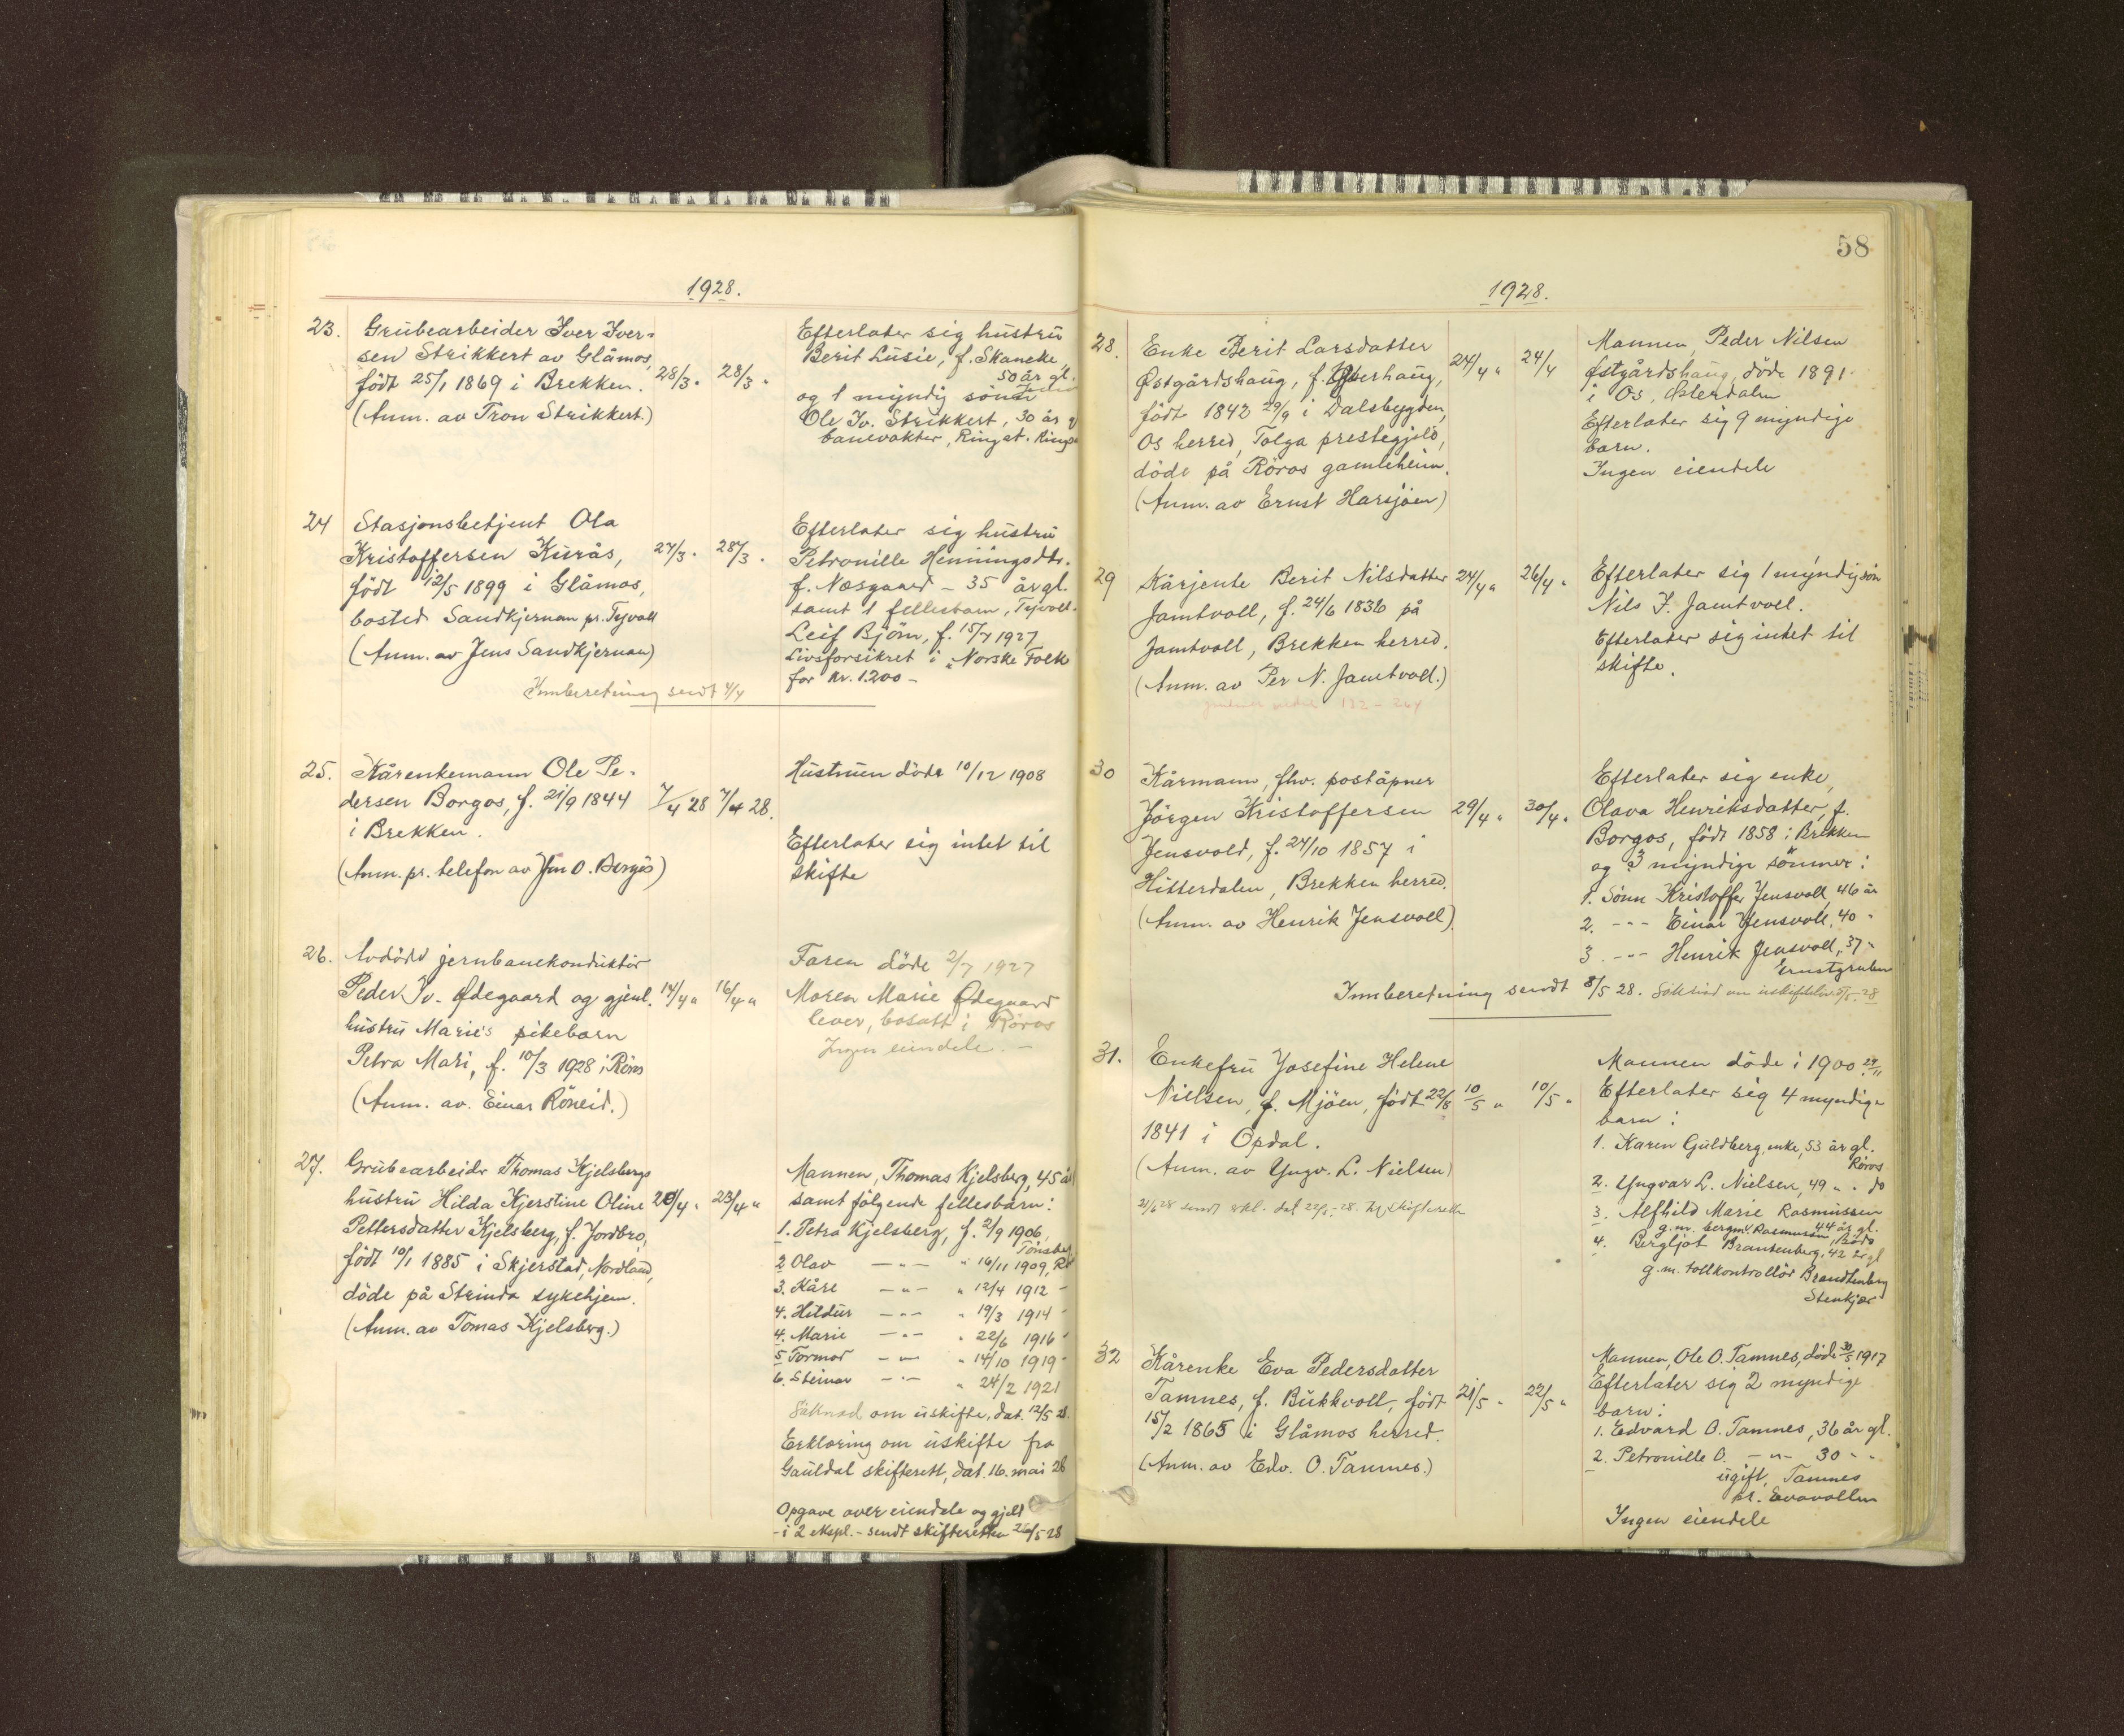 1928.
23. Grubearbeider Iver Iver-
sen Strikkert av Glåmos,
født 25/1 1869 i Brekken.
(Anm. av Tron Strikkert.)
28/3 "
28/3 "
Efterlater sig hustru
Berit Lusie, f. Skancke,
50 år gl.
og 1 myndig sønn
Ole Iv. Strikkert, 30 år
banevakter, Ringst.
24 Stasjonsbetjent Ola
Kristoffersen Kurås,
født 12/5 1899 i Glåmos,
bosted Sandkjernan pr. Tyvoll
(Anm. av Jens Sandkjernan)
27/3 "
28/3 "
Efterlater sig hustru
Petronille Henningsdtr.
f. Næsgaard - 35 år gl.
samt 1 fellesbarn, Tyvoll.
Leif Bjørn, f. 15/7 1927
Livsforsikret i "Norske Folk
for kr. 1.200 -
Innberetning sendt 4/4
25. Kårenkemann Ole Pe-
dersen Borgos, f. 21/9 1844
i Brekken.
(Anm. pr. telefon av Jon O. Borgos)
7/4 28
7/4 28.
Hustruen døde 10/12 1908
Efterlater sig intet til
skifte
26. Avdøde jernbanekonduktør
Peder Iv. Ødegaard og gjenl.
hustru Marie's pikebarn
Petra Mari, f. 10/3 1928 i Røros
(Anm. av. Einar Røneid.)
14/4 "
16/4 "
Faren døde 2/7 1927
Moren Marie Ødegaard
lever, bosatt i Røros
Ingen eiendele. -
27. Grubearbeider Thomas Kjelsbergs
hustru Hilda Kjerstine Oline
Pettersdatter Kjelsberg, f. Jordbro,
født 10/1 1885 i Skjerstad, Nordland,
døde på Strinda sykehjem.
(Anm. av Tomas Kjelsberg.)
20/4 "
23/4 "
Mannen, Thomas Kjelsberg, 45 år
samt følgende fellesbarn:
1. Petra Kjelsberg, f. 2/9 1906,
Tønsberg
2 Olav - " - " 16/11 1909,
3. Kåre - " - " 12/4 1912 -
4. Hildur - " - " 19/3 1914 -
4. Marie - " - " 22/6 1916 "
5 Tormod - " - " 14/10 1919 -
6. Steinar - " - " 24/2 1921
Søknad om uskifte, dat. 12/5 28.
Erklæring om uskifte fra
Gauldal skifterett, dat. 16. mai 28
Opgave over eiendele og gjeld
- i 2 ekspl. - sendt skifteretten 25/5 28
58
1928.
28. Enke Berit Larsdatter
Østgårdshaug, f. Øverhaug,
født 1842 29/9 i Dalsbygden,
Os herred, Tolga prestegjeld,
døde på Røros gamleheim.
(Anm. av Ernst Harsjøen)
24/4 "
24/4
Mannen, Peder Nilsen
Østgårdshaug, døde 1891
i Os, Østerdalen
Efterlater sig 9 myndige
barn.
Ingen eiendele
29 Kårjente Berit Nilsdatter
Jamtvoll, f. 24/6 1836 på
Jamtvoll, Brekken herred.
(Anm. av Per N. Jamtvoll.)
24/4 "
26/4 "
Efterlater sig 1 myndig søn
Nils J. Jamtvoll.
Efterlater sig intet til
skifte.
30 Kårmann, fhv. poståpner
Jørgen Kristoffersen
Jensvold, f. 24/10 1857 i
Hitterdalen, Brekken herred.
(Anm. av Henrik Jensvoll)
29/4 "
30/4 "
Efterlater sig enke,
Olava Henriksdatter, f.
Borgos, født 1858 i Brekken
og 3 myndige sønner:
1. Sønn Kristoffer Jensvoll, 46 år
2. - " - Einar Jensvoll, 40 "
3. - " - Henrik Jensvoll, 37 "
Ernstgruben
Innberetning sendt 8/5 28. Søknad om uskifte 5/5 28
31. Enkefru Josefine Helene
Nielsen, f. Mjöen, født 22/8
1841 i Opdal.
(Anm. av Yngv. L. Nielsen)
10/5 "
10/5 "
Mannen døde i 1900 24/11
Efterlater sig 4 myndige
barn:
1. Karen Guldberg, enke, 53 år gl.
Røros
2. Yngvar L. Nielsen, 49 " " do
3. Alfhild Marie Rasmussen
44 år gl.
g.m. bergm. Rasmussen, Bodø
4. Bergljot Brandtenberg, 42 år gl
g.m. tollkontrollør Brandtenberg
Stenkjær
21/6 28 sendt erkl. dat 22/5 28. til skifteretten
32 Kårenke Eva Pedersdatter
Tamnes, f. Bukkvoll, født
15/2 1865 i Glåmos herred.
(Anm. av Edv. O. Tamnes.)
21/5 "
22/5 "
Mannen, Ole O. Tamnes, døde 30/5 1917
Efterlater sig 2 myndige
barn:
1. Edvard O. Tamnes, 36 år gl.
2. Petronille O. - " - 30 " "
ugift, Tamnes
pr. Evavollen
Ingen eiendele